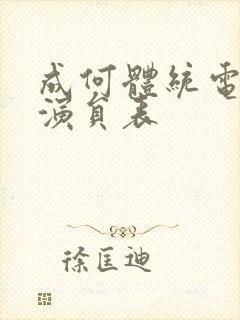 成何體統電
演員表
徐匡迪